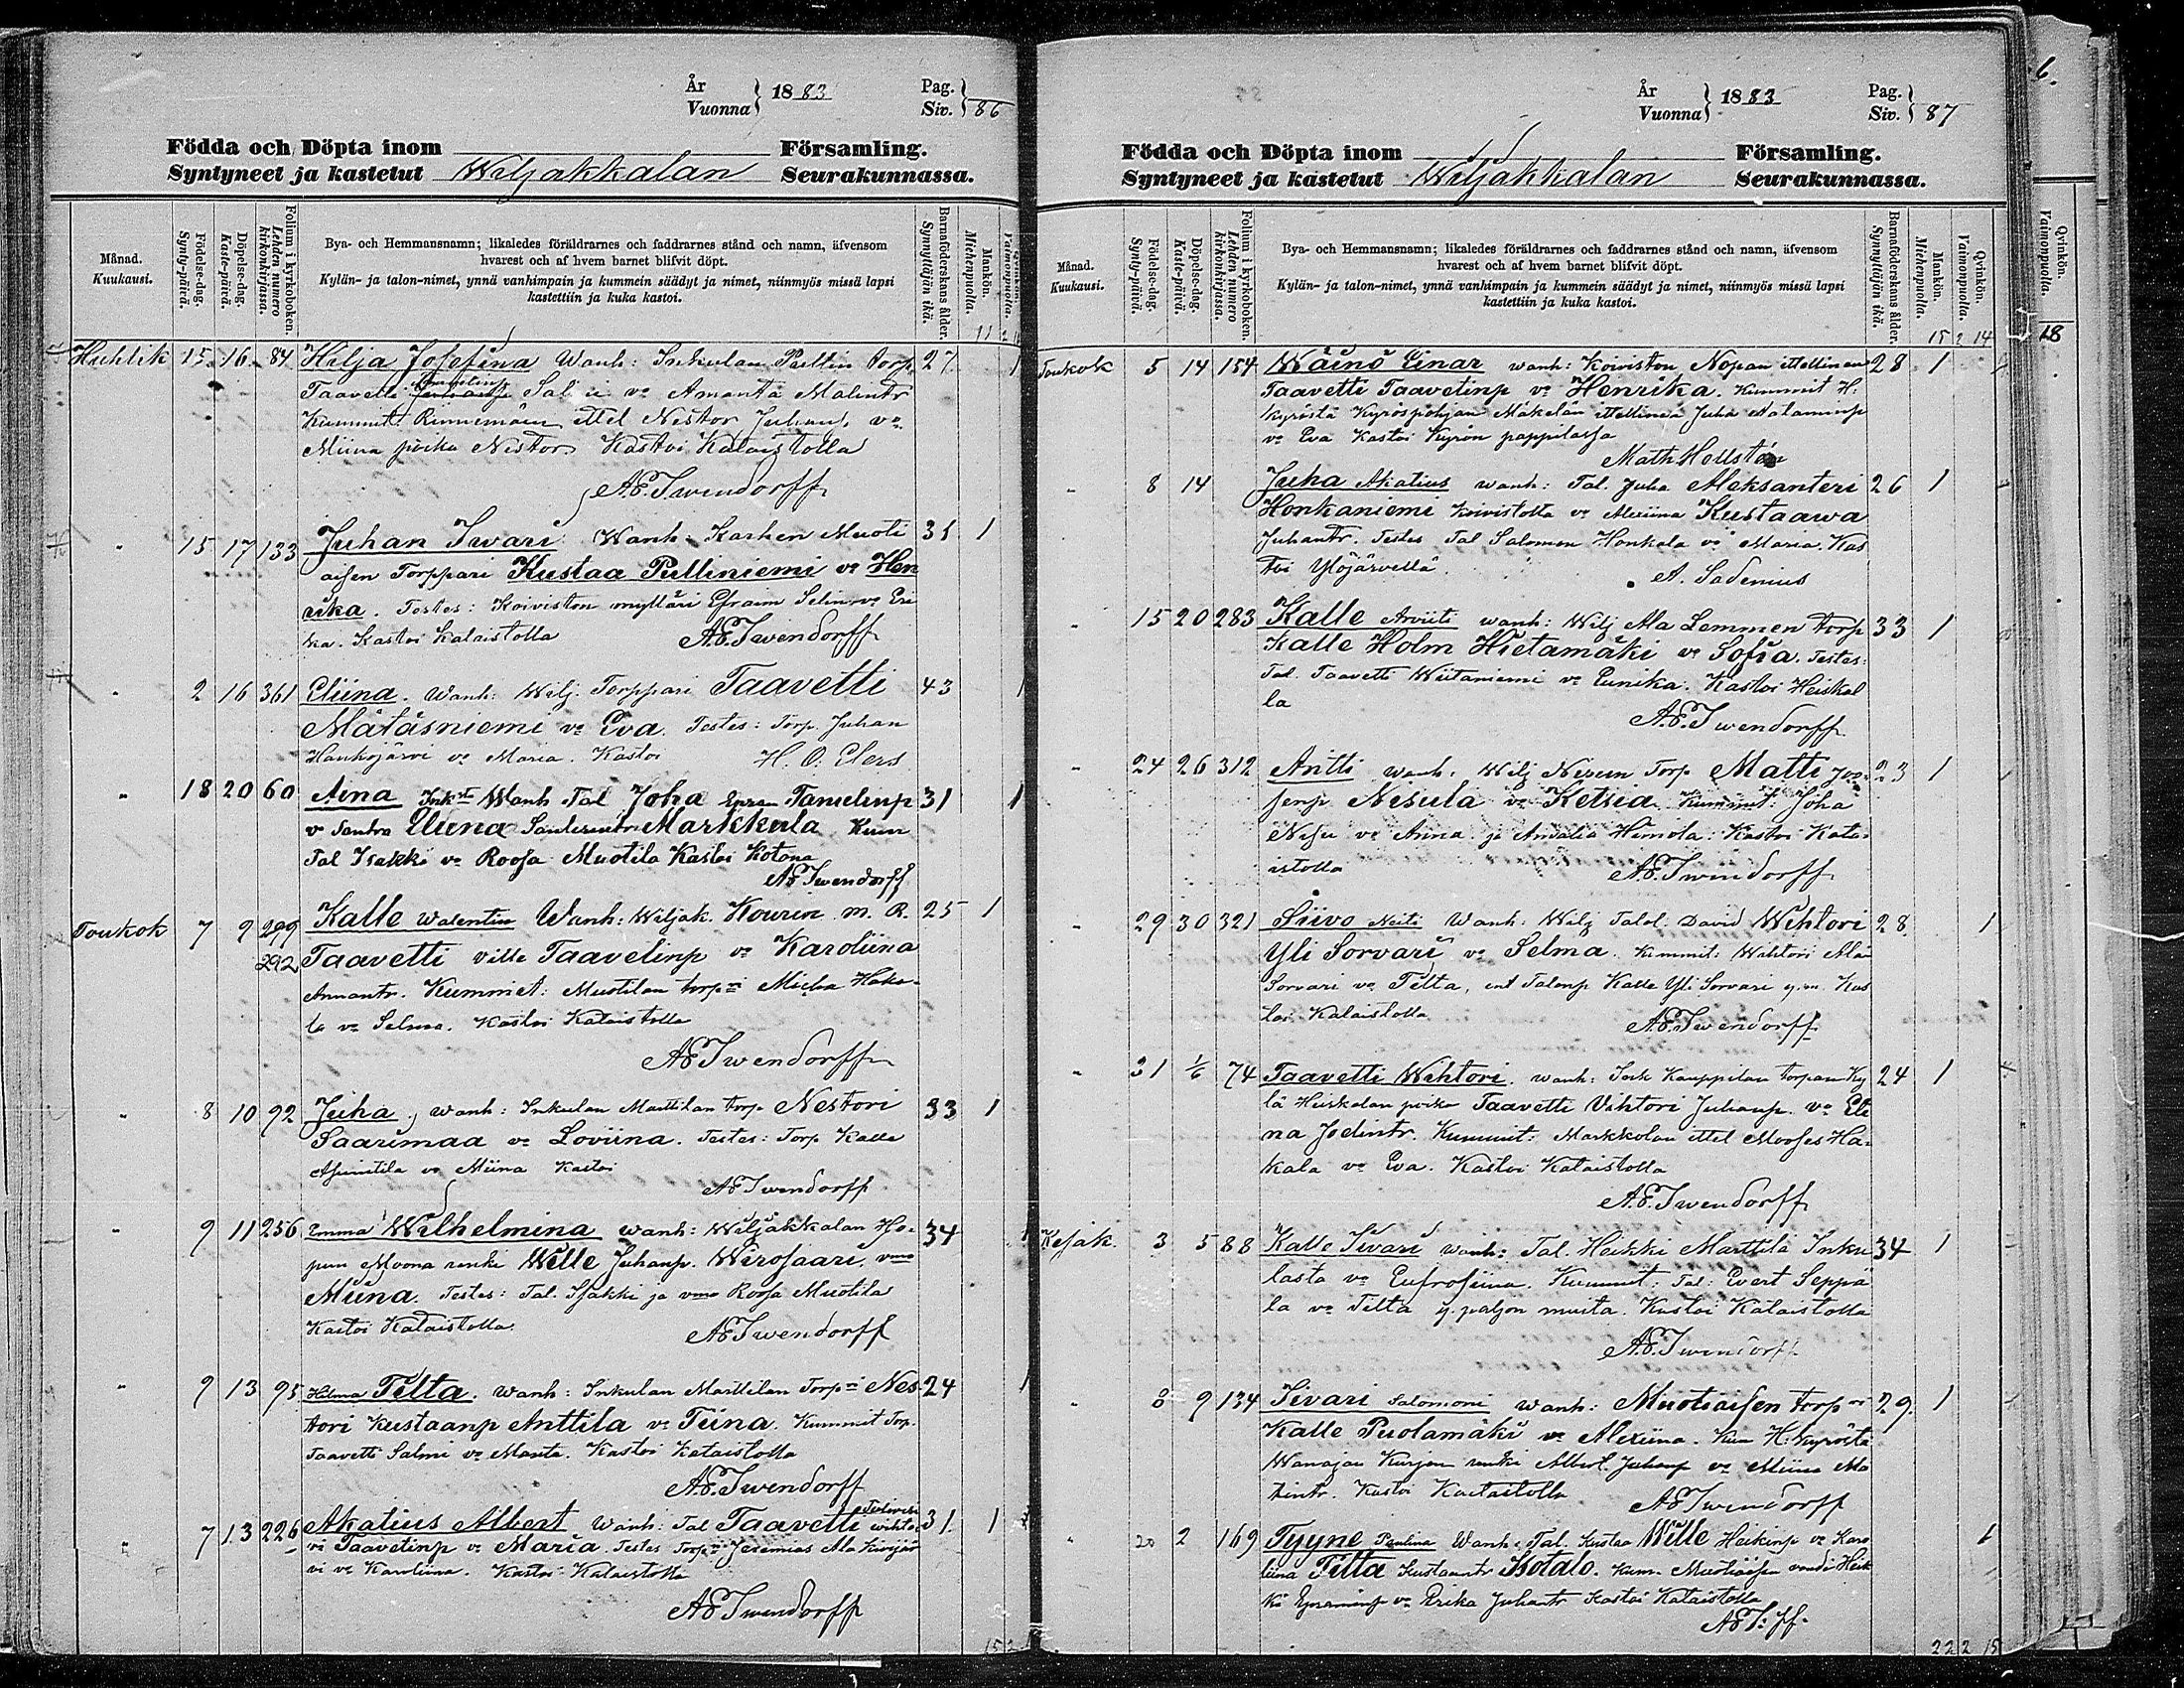 År
Vuonna } 1883
Pag.
Siv. } 86
Födda och Döpta inom Församling.
Syntyneet ja kastetut Wiljakkalan Seurakunnassa.
Månad.
Kuukausi.
Födelse-dag.
Synty-päivä.
Döpelse-dag.
Kaste-päivä.
Folium i kyrkoboken.
Lehden numero kirkonkirjassa.
Bya- och Hemmansnamn; likaledes föräldrarnes och faddrarnes stånd och namn, äfvensom
hvarest och af hvem barnet blifvit döpt.
Kylän- ja talon-nimet, ynnä vanhimpain ja kummein säädyt ja nimet, niinmyös missä lapsi
kastettiin ja kuka kastoi.
Barnaföderskans ålder.
Synnyttäjän ikä.
Mankön.
Miehenpuolta.
11
Huhtik 15 16 84 Hilja Josefina Wanh: Inkulan Pultin torp. 27 1
Taavetti v:o Amanta Malintr
Kummit: Rinnemäen ittel Nestor Juhanp. v:o
Miina poika Nestor Kastoi Kataistolla
A.E. Iwendorff
" 15 17 133 Juhan Iivari Wanh: Karhen Muoti 35 1
aisen Torppari Kustaa Pulliniemi v:o Hen
rika. Testes: Koiviston mylläri Efraim Selin v:o Eri
ka. Kastoi Kataistolla A.E. Iwendorff
" 2 16 361 Eliina. Wanh: Wilj. Torppari Taavetti 43 1
Mätäsniemi v:o Eva. Testes: Torp. Juhan
Hanhijärvi v:o Maria. Kastoi H. O. Elers
" 18 20 60 Aina Wanh Tal Joha Tanielinp 31 1
v Sandra Eliina Santerintr Markkula Kum
Tal Isakki v:o Roosa Muotila Kastoi Kotona
A.E. Iwendorff
Toukok 7 9 299 Kalle Walentin Wanh: Wiljak. Kourin m. R. 25 1
292 Taavetti ville Taavetinp v:o Karoliina
Annantr. Kummit: Muotilan torp:ri Micha Hako-
la v:o Selma. Kastoi Kataistolla
A.E. Iwendorff
" 8 10 92 Juha, wanh: Inkulan Marttilan torp. Nestori 33 1
Saarimaa v:o Loviina. Testes: Torp. Kalle
v:o Miina Kastoi
A.E. Iwendorff
" 9 11 256 Emma Wilhelmina wanh: Wiljakkalan Ho- 34 1
pun Moona renki Wille Juhanp. Wirosaari, v:mo
Miina. Testes: Tal. Isakki ja v:mo Roosa Muotila
Kastoi Kataistolla. A.E. Iwendorff
" 9 13 95 Hilma Tilta. wanh: Inkulan Marttilan Torp:ri Nes- 24 1
tori Kustaanp Anttila v:o Tiina. Kummit Torp.
Taavetti Salmi v:o Manta. Kastoi Kataistolla
A.E. Iwendorff
" 7 13 226 Akatius Albert Wanh: Tal Taavetti wihto- 31. 1
ri Taavetinp v:o Maria. Testes Torp:ri Jeremias Ala Kivijär
vi v:o Karoliina. Kastoi Kataistolla
A.E. Iwendorff
15 2
År
Vuonna } 1883
Pag.
Siv. } 87
Födda och Döpta inom Församling.
Syntyneet ja kastetut Wiljakkalan Seurakunnassa.
Månad.
Kuukausi.
Födelse-dag.
Synty-päivä.
Döpelse-dag.
Kaste-päivä.
Folium i kyrkoboken.
Lehden numero kirkonkirjassa.
Bya- och Hemmansnamn; likaledes föräldrarnes och faddrarnes stånd och namn, äfvensom
hvarest och af hvem barnet blifvit döpt.
Kylän- ja talon-nimet, ynnä vanhimpain ja kummein säädyt ja nimet, niinmyös missä lapsi
kastettiin ja kuka kastoi.
Barnaföderskans ålder.
Synnyttäjän ikä.
Mankön.
Miehenpuolta.
Qvinkön.
Vaimonpuolta.
15 2 14
Toukok 5 14 154 Wäinö Einar wanh: Koiviston Nopan ittellinen 28 1
Taavetti Taavetinp v:o Henrika. Kummit H:
kyröstä Kyröspohjan Mäkelän ittellinen Juha Aalaminp
v:o Eva Kastoi Kyrön pappilassa
Math Hellstén
" 8 14 Juha Akatius wanh: Tal. Juha Aleksanteri 26 1
Honkaniemi Koivistolta v:o Alexiina Kustaawa
Juhantr. Testes Tal Salomon Honkala v:o Maria. Kas
toi Ylöjärvellä. A. Sadenius
" 15 20 283 Kalle Arviiti wanh: Wilj Ala Lemmen torp 33 1
Kalle Holm Hietamäki v:o Sofia. Testes:
Tal. Taavetti Wiitaniemi v:o Eunika. Kastoi Heiskal
la
A.E. Iwendorff
" 24 26 312 Antti wanh. Wilj Nesun Torp Matti Joo- 23 1
senp Nesula v:o Ketsia. Kummit: Joha
Nesu v:o Anna ja Amalia Himola: Kastoi Kata-
istolla A.E. Iwendorff
" 29 30 321 Siivo Neiti Wanh: Wilj Talol. David Wihtori 28 1
Yli Sorvari v:o Selma. Kummit: Wihtori Ala
Sorvari v:o Tilta, ent Talonp Kalle Yli Sorvari y.m. Kas
toi Kataistolla
A.E. Iwendorff
" 31 1/6 74 Taavetti Wihtori. wanh: Kauppilan torpan Ky 24 1
lä Heiskalan poika Taavetti Vihtori Juhanp. v:o Eli
na Joelintr. Kummit: Markkolan ittel Mooses Ha-
kala v:o Eva. Kastoi Kataistolla
A.E. Iwendorff
Kesäk. 3 5 88 Kalle Iivari wanh: Tal. Heikki Marttila Inku 34 1
lasta v:o Eufrosiina. Kummit: Tal: Evert Seppä
la v:o Tilta y. paljon muita. Kastoi Kataistolla
A.E. Iwendorff
" 8 9 134 Iivari Salomoni wanh: Muotiaisen torp:ri 29. 1
Kalle Puolamäki v:o Alexiina. Kum H: kyröstä
Wanajan Kurjen renki Albert Juhanp v:o Miina Ma
tintr. Kastoi Kataistolla A.E. Iwendorff
" 20 2 169 Tyyne Paulina Wanh: Tal. Kustaa Wille Heikinp v:o Karo 1
liina Tilta Kustaantr Kotalo. Kum. Muotiaisen Heik
ki v:o Erika Juhantr Kastoi Kataistolla
A.E.I:ff.
22 2 15
6.
Qvinkön.
Vaimonpuolta.
18